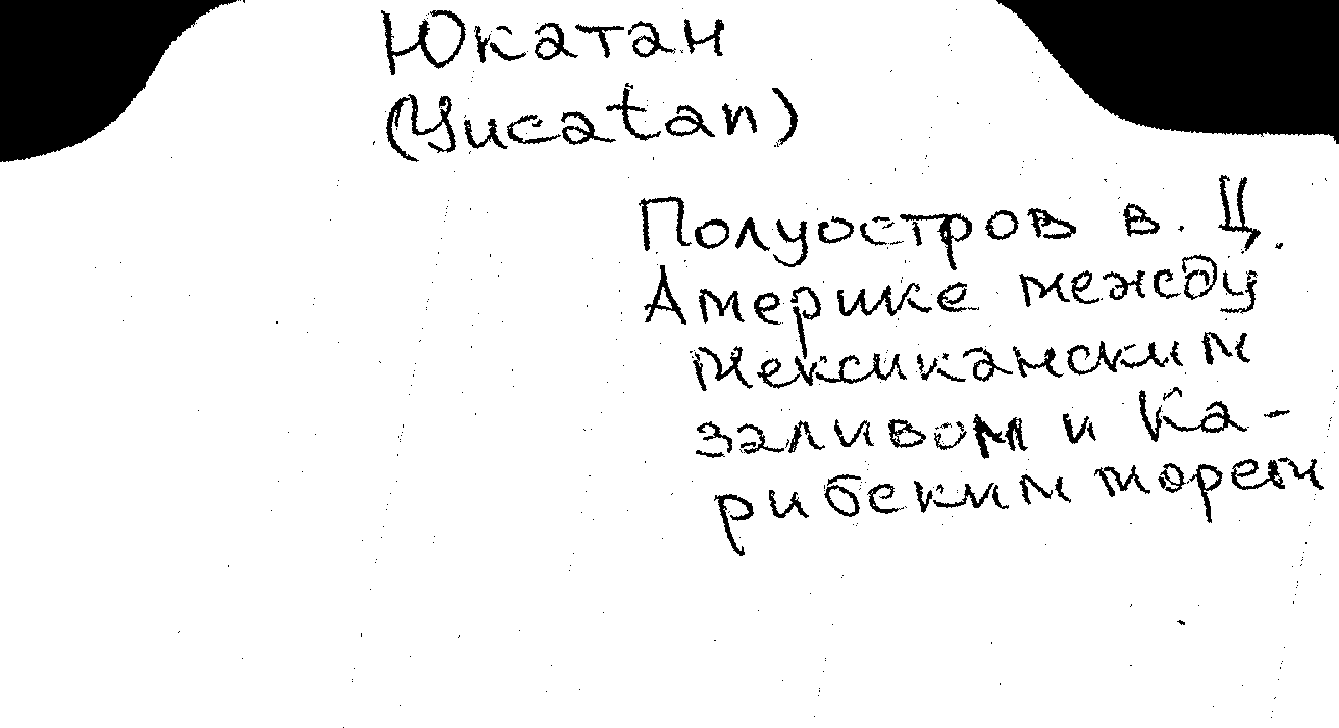 Юкатан
(Yucatan)
Полуостров в. Ц.
Америке между
мексиканским
заливом и Ка-
рибским морем